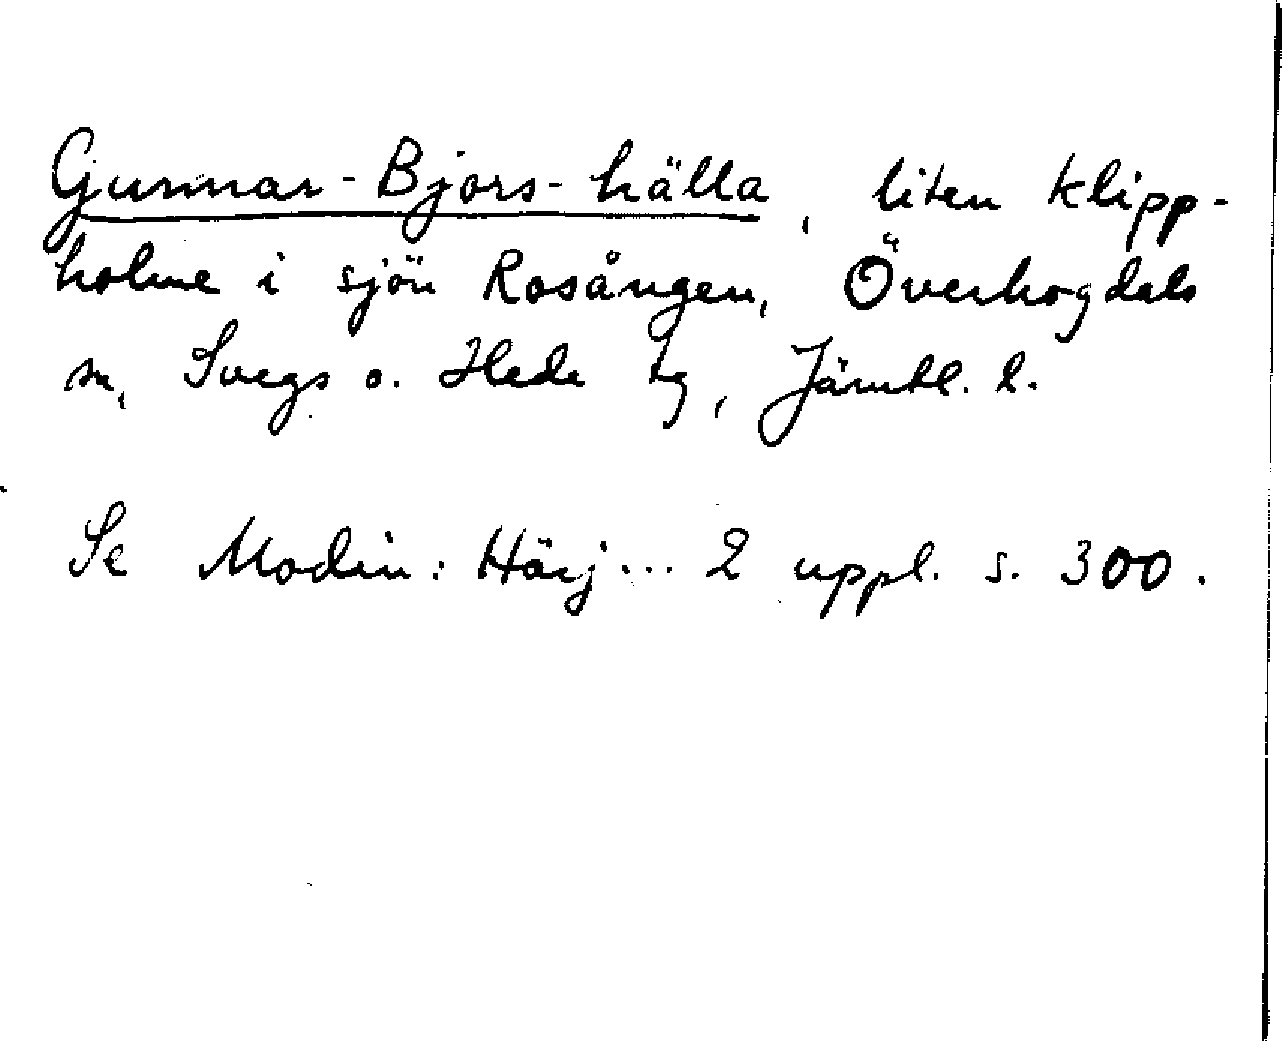 Gunnar-Bjors-hälla, liten klipp-
holme i sjön Rosången, Överhogdals
sn, Svegs o. Hede tg, Jämtl. l.
Se Modin: Härj... 2 uppl. s. 300.